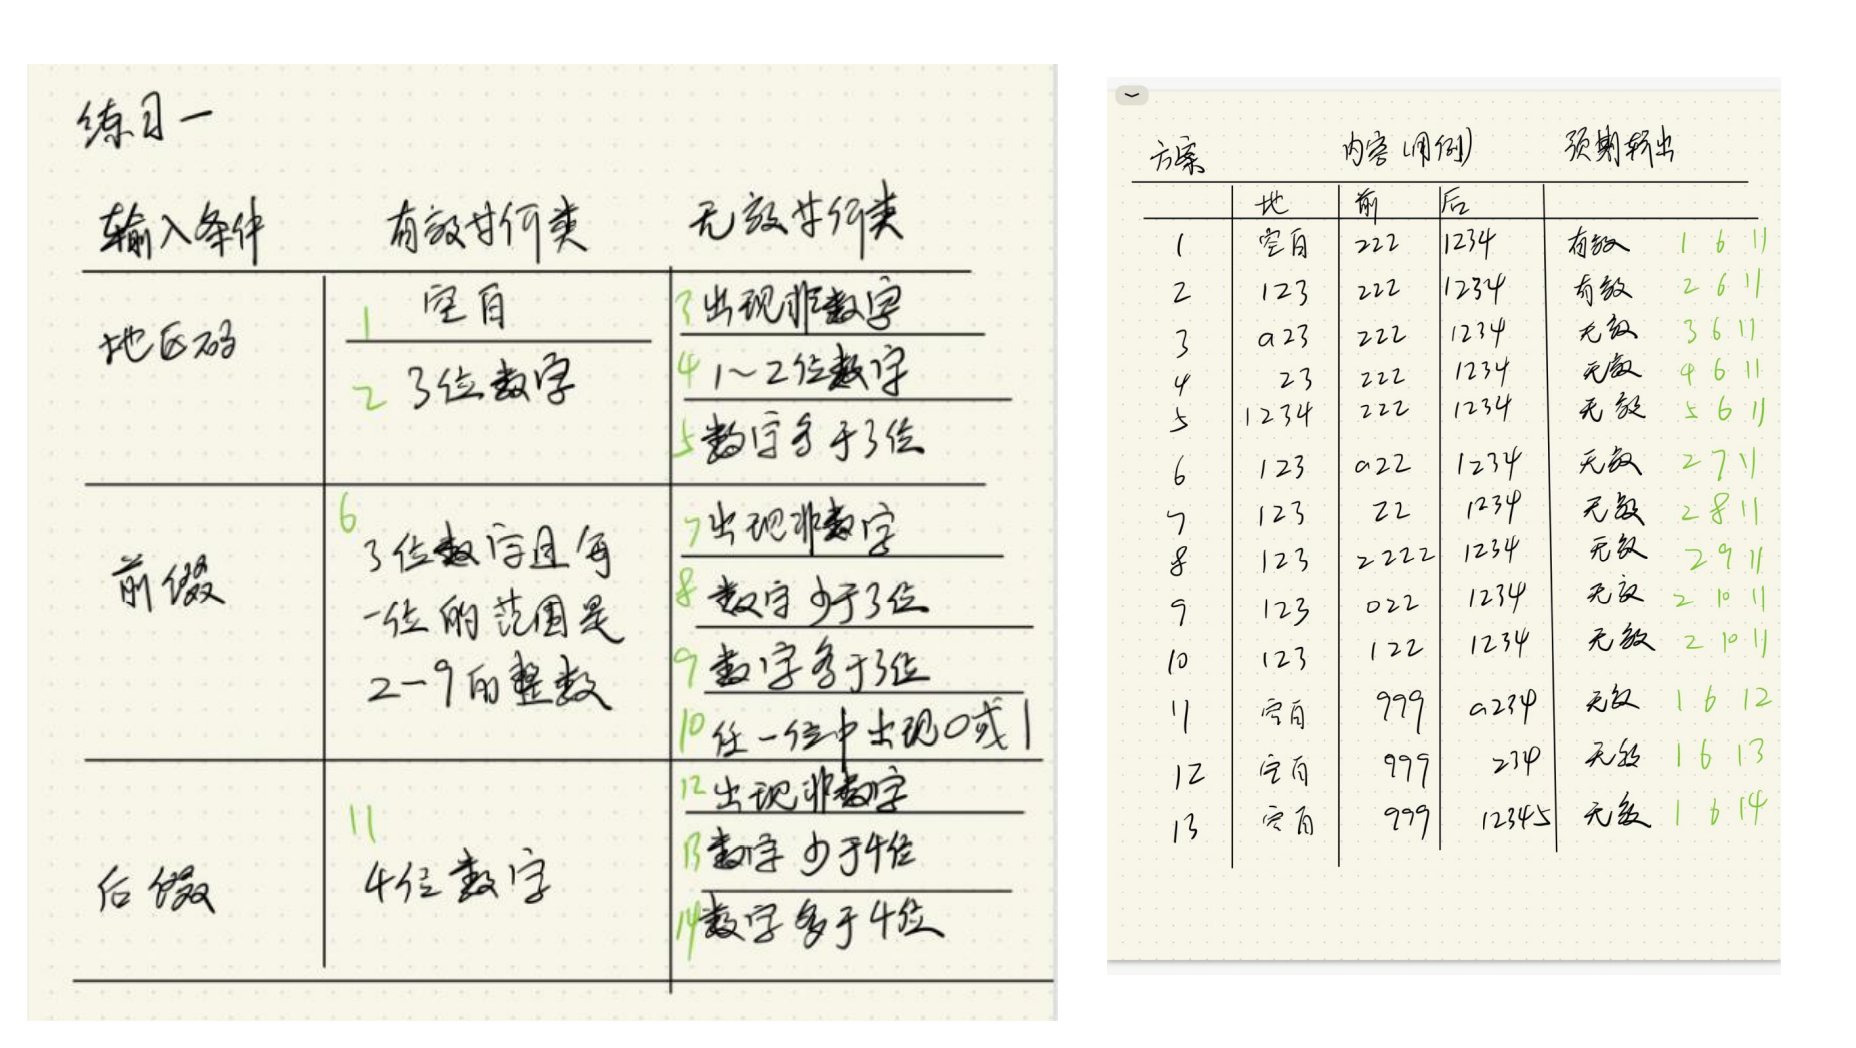 练习一
输入条件 有效等价类 无效等价类
地区码
1 空白
2 3位数字
3 出现非数字
4 1~2位数字
5 数字多于3位
前缀
6
3位数字且每
一位的范围是
2-9的整数
7 出现非数字
8 数字少于3位
9 数字多于3位
10 任一位中出现0或1
后缀
11
4位数字
12 出现非数字
13 数字少于4位
14 数字多于4位
方案 内容(用例) 预期输出
地 前 后
1 空白 222 1234 有效 1 6 11
2 123 222 1234 有效 2 6 11
3 a23 222 1234 无效 3 6 11
4 23 222 1234 无效 4 6 11
5 1234 222 1234 无效 5 6 11
6 123 a22 1234 无效 2 7 11
7 123 22 1234 无效 2 8 11
8 123 2222 1234 无效 2 9 11
9 123 022 1234 无效 2 10 11
10 123 122 1234 无效 2 10 11
11 空白 999 a234 无效 1 6 12
12 空白 999 234 无效 1 6 13
13 空白 999 12345 无效 1 6 14